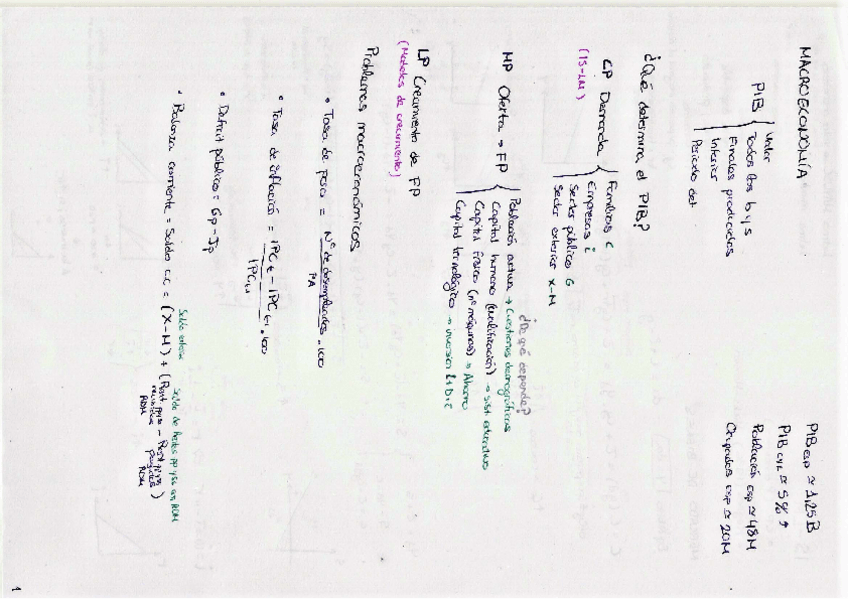 MACROECONOMÍA
PIB { Valor
Todos los b y s
Finales producidos
Interior
Periodo det
PIB esp ≃ 1,25B
PIB cyl ≃ 5% ↑
Población esp ≃ 48M
Ocupados esp ≃ 20M
¿Qué determina el PIB?
CP Demanda { Familias C
(IS-LM)
Empresas i
Sector público G
Sector exterior X-M
¿De qué depende?
MP Oferta → FP { Población activa → Cuestiones demográficas
Capital humano (cualificación) → sist. educativo
Capital físico (nº máquinas) → Ahorro
Capital tecnológico → inversión I+D+i
LP Crecimiento de FP
(Modelos de crecimiento)
Problemas macroeconómicos
• Tasa de paro = Nº de desempleados / PA · 100
• Tasa de inflación = IPCt - IPCt-1 / IPCt-1 · 100
• Déficit público = Gp - Ip
Saldo de Rentas pp y ss en RDM
• Balanza corriente = Saldo CC = (X-M) + (Rent pp y ss - Rent pp y ss)
RDM RDM
1